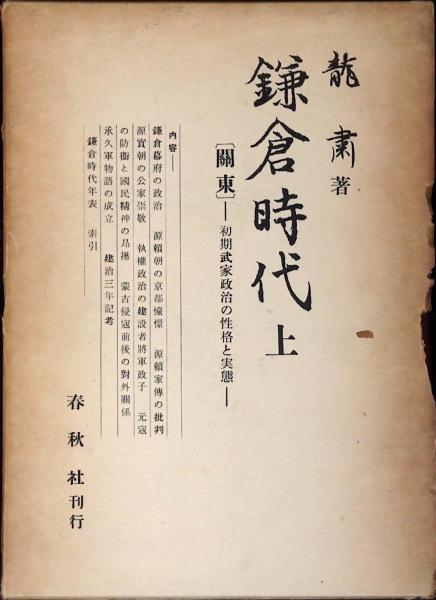 龍肅著
鎌倉時代上
［關東］―初期武家政治の性格と実態―
内容―
鎌倉幕府の政治 源賴朝の京都憧憬 源賴家傳の批判
源實朝の公家崇敬 執權政治の建設者將軍政子 元寇
の防衛と國民精神の昂揚 蒙古侵寇前後の對外關係
承久軍物語の成立 建治三年記考
鎌倉時代年表 索引
春秋社刊行